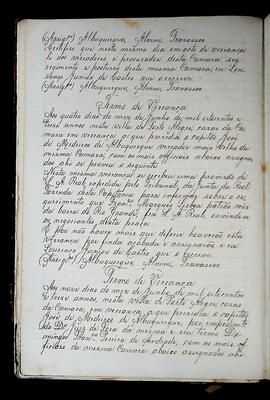 (Assig.os) Albuquerque, Alvim, Travassos
Certifico que neste mesmo dia em acto de vereança
os vereadores e procurador desta Camara
e posturas desta mesma Camara; eu Lou
renço Junior de Castro que o escrevi
(Assig.os) Albuquerque, Alvim, Travassos.
Termo de Vereança
Aos quatro dias do mez de Junho de mil oitocentos e
treze annos, nesta villa de Porto Alegre, casas da Ca
mara em vereança a que presidiu o capitão José
de Medeiros de Albuquerque vereador mais velho da
mesma Camara, com os mais officiaes abaixo assigna
dos, ahi se proveu o seguinte
Nesta mesma vereança se recebeu uma provisão de
S. A. Real expedida pelo Tribunal da Junta da Real
Fazenda desta Capitania para informar sobre o re
querimento que Marques Lisboa patrão mór
da barra do Rio Grande, fez a S. A. Real, ouvindo-se
os negociantes desta praça
E por não haver mais que deferir houverão esta
vereança por finda acabada e assignarão, e eu
Lourenço Junior de Castro que o escrevi
(Assig.os) Albuquerque, Alvim, Travassos.
Termo de Vereança
Aos nove dias do mez de Junho de mil oitocentos
e treze annos, nesta villa de Porto Alegre, casas
da Camara, em vereança, a que presidiu o capitão
José de Medeiros de Albuquerque, por impedimento
do Dr. Juiz de Fóra da mesma e seu termo Do
mingos Pereira de Andrade, com os mais of
ficiaes da mesma Camara abaixo assignados ahi